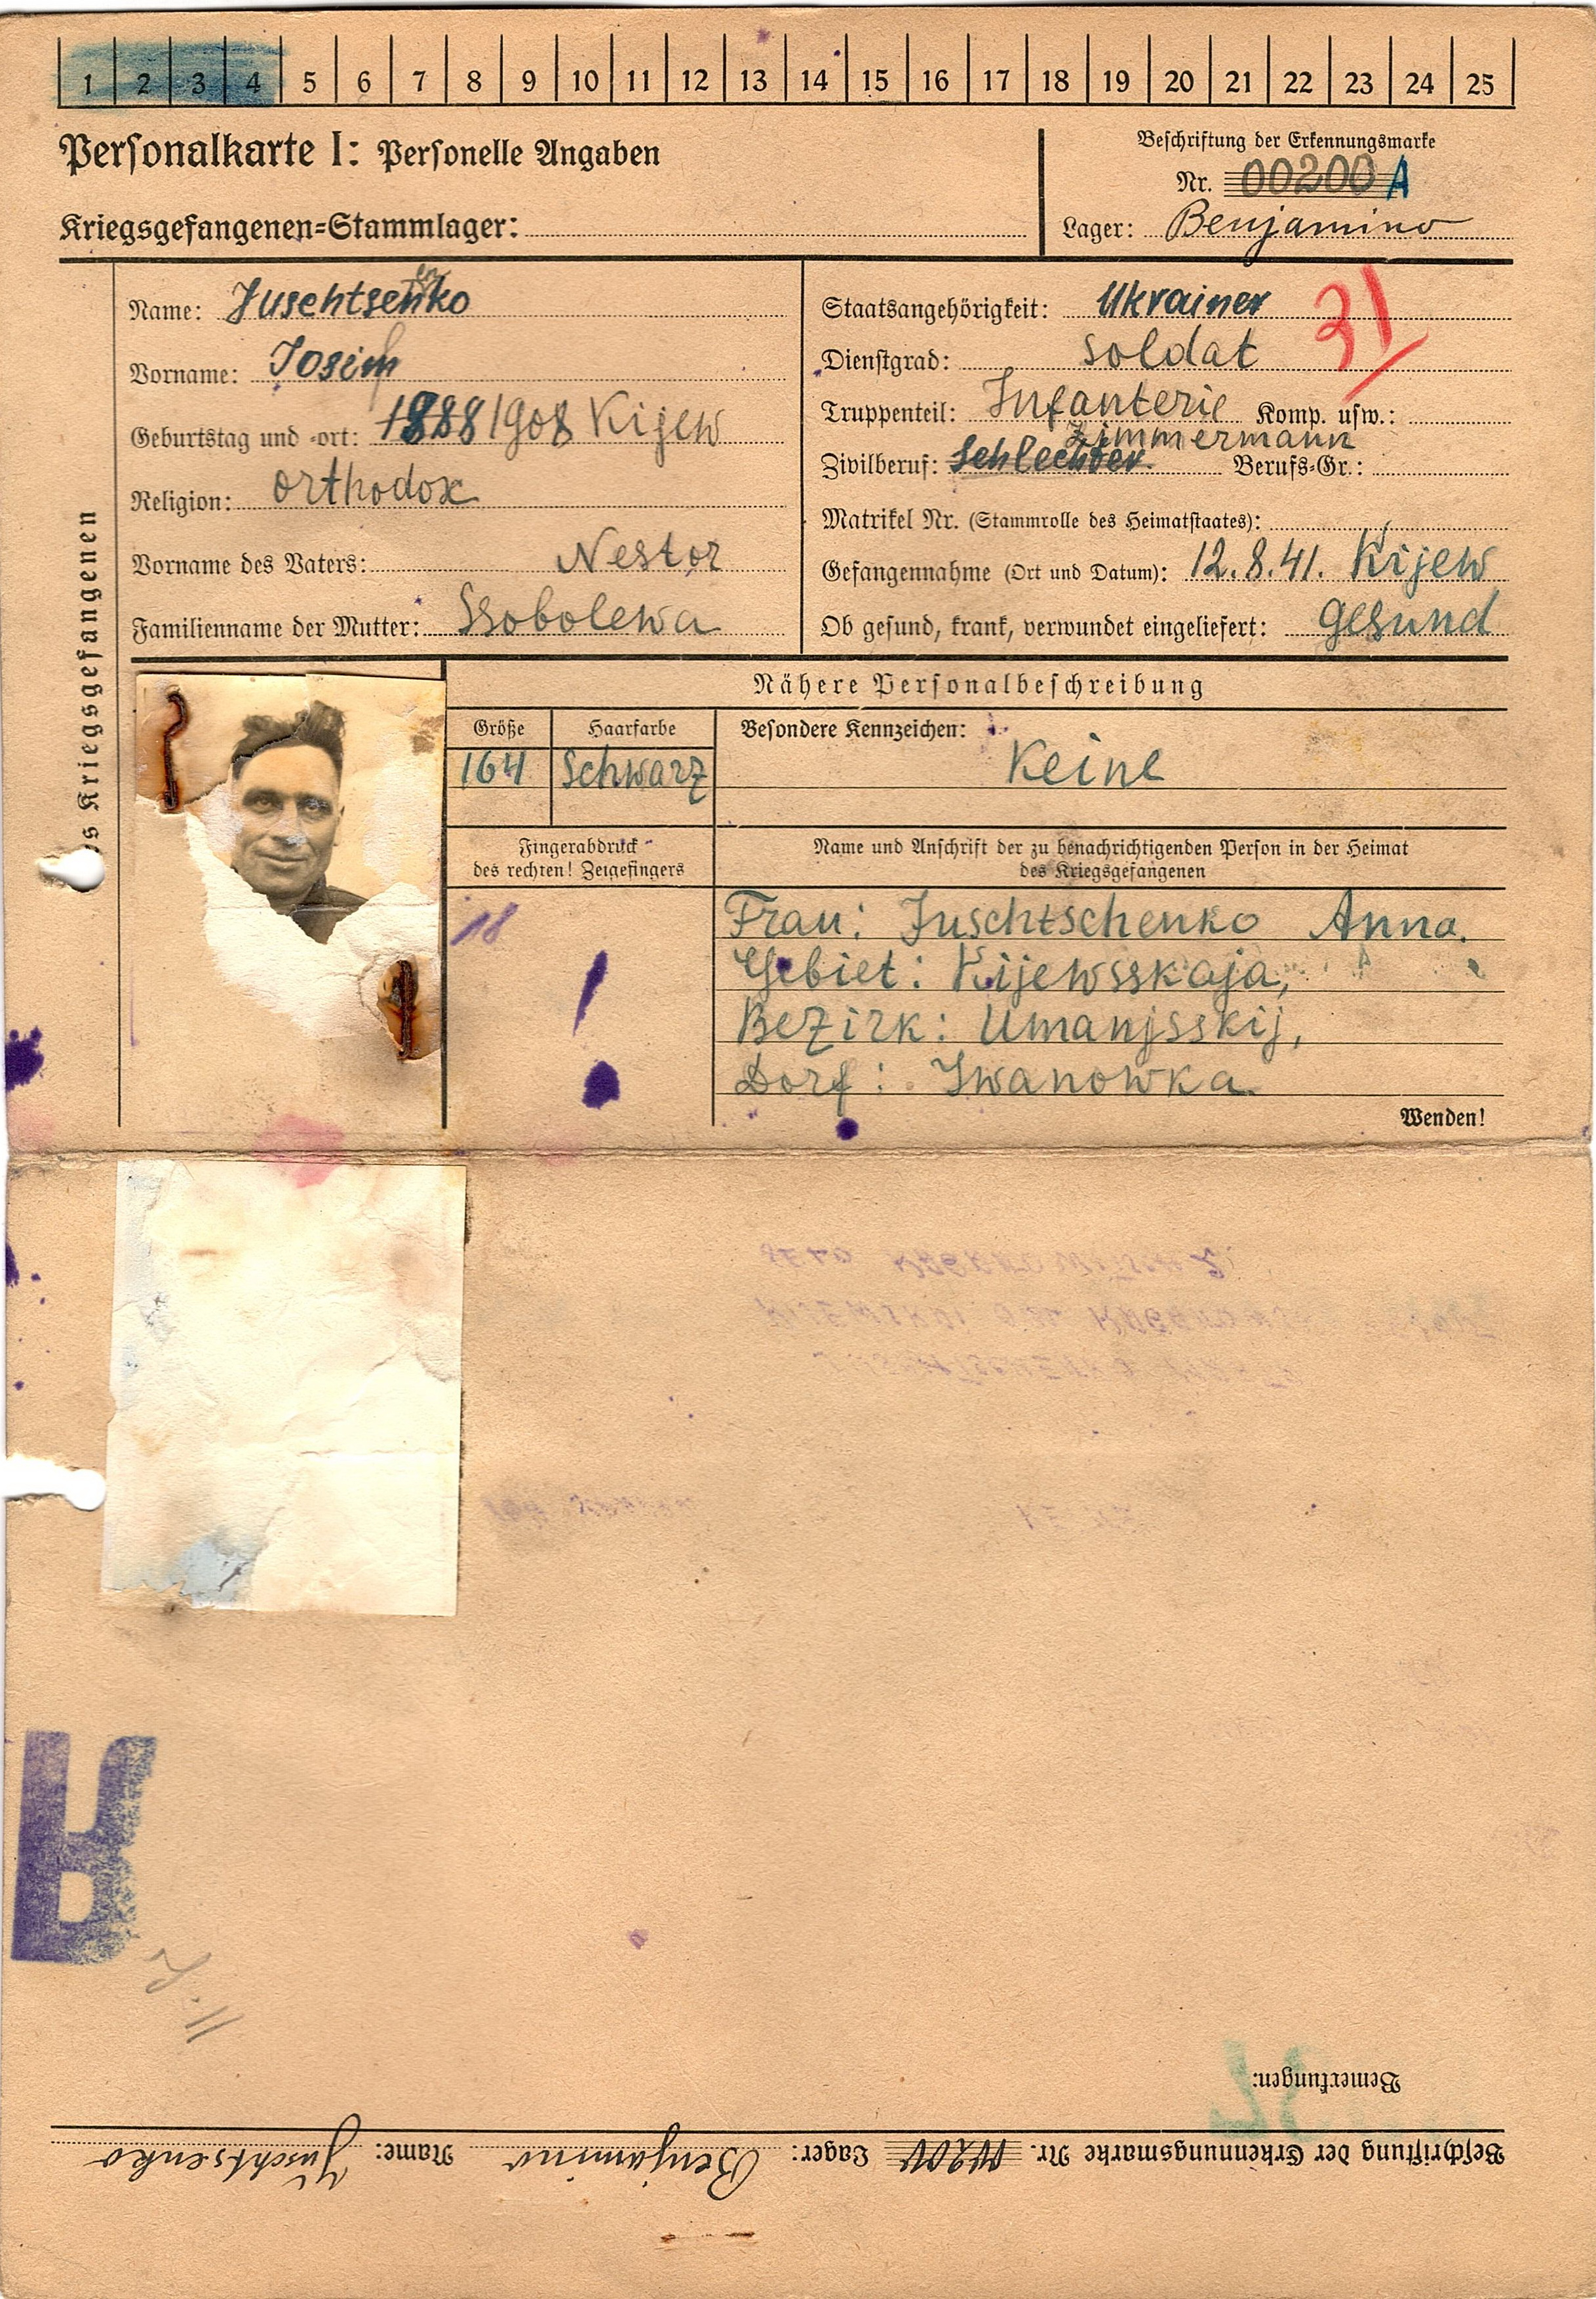 1 2 3 4 5 6 7 8 9 10 11 12 13 14 15 16 17 18 19 20 21 22 23 24 25
Personalkarte I: Personelle Angaben
Beschriftung der Erkennungsmarke
Nr. 00200 A
Kriegsgefangenen=Stammlager:
Lager: Benjamino
des Kriegsgefangenen
Name: Juschtsenko
Vorname: Josif
Geburtstag und =ort: 1888 1908 Kijew
Religion: orthodox
Vorname des Vaters: Nestor
Familienname der Mutter: Ssobolewa
Staatsangehörigkeit: Ukrainer
31
Dienstgrad: Soldat
Truppenteil: Infanterie Komp. usw.:
Zimmermann
Zivilberuf: Schlechter Berufs=Gr.:
Matrikel Nr. (Stammrolle des Heimatstaates):
Gefangennahme (Ort und Datum): 12.8.41. Kijew
Ob gesund, krank, verwundet eingeliefert: Gesund
Nähere Personalbeschreibung
Größe Haarfarbe Besondere Kennzeichen:
164 Schwarz Keine
Fingerabdruck
des rechten! Zeigefingers
Name und Anschrift der zu benachrichtigenden Person in der Heimat
des Kriegsgefangenen
18
Frau: Juschtschenko Anna.
Gebiet: Kijewsskaja,
Bezirk: Umanjsskij,
Dorf: Iwanowka
Wenden!
Bemerkungen:
Beschriftung der Erkennungsmarke Nr. 00200 Lager: Benjamino Name: Juschtsenko